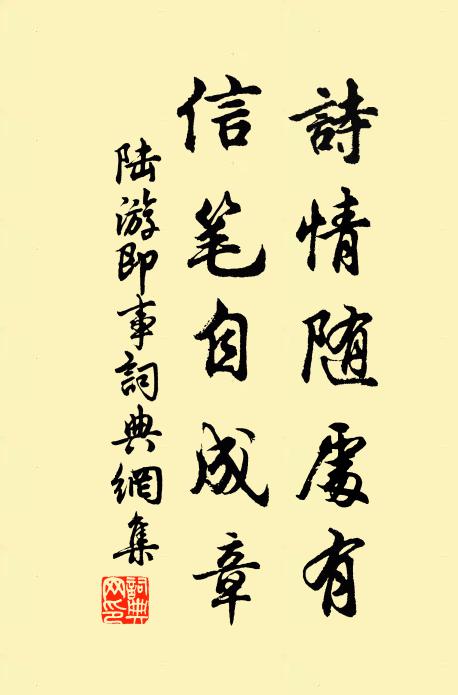 詩情随處有
信笔自成章
陆游即事詞典網集
詞典网印